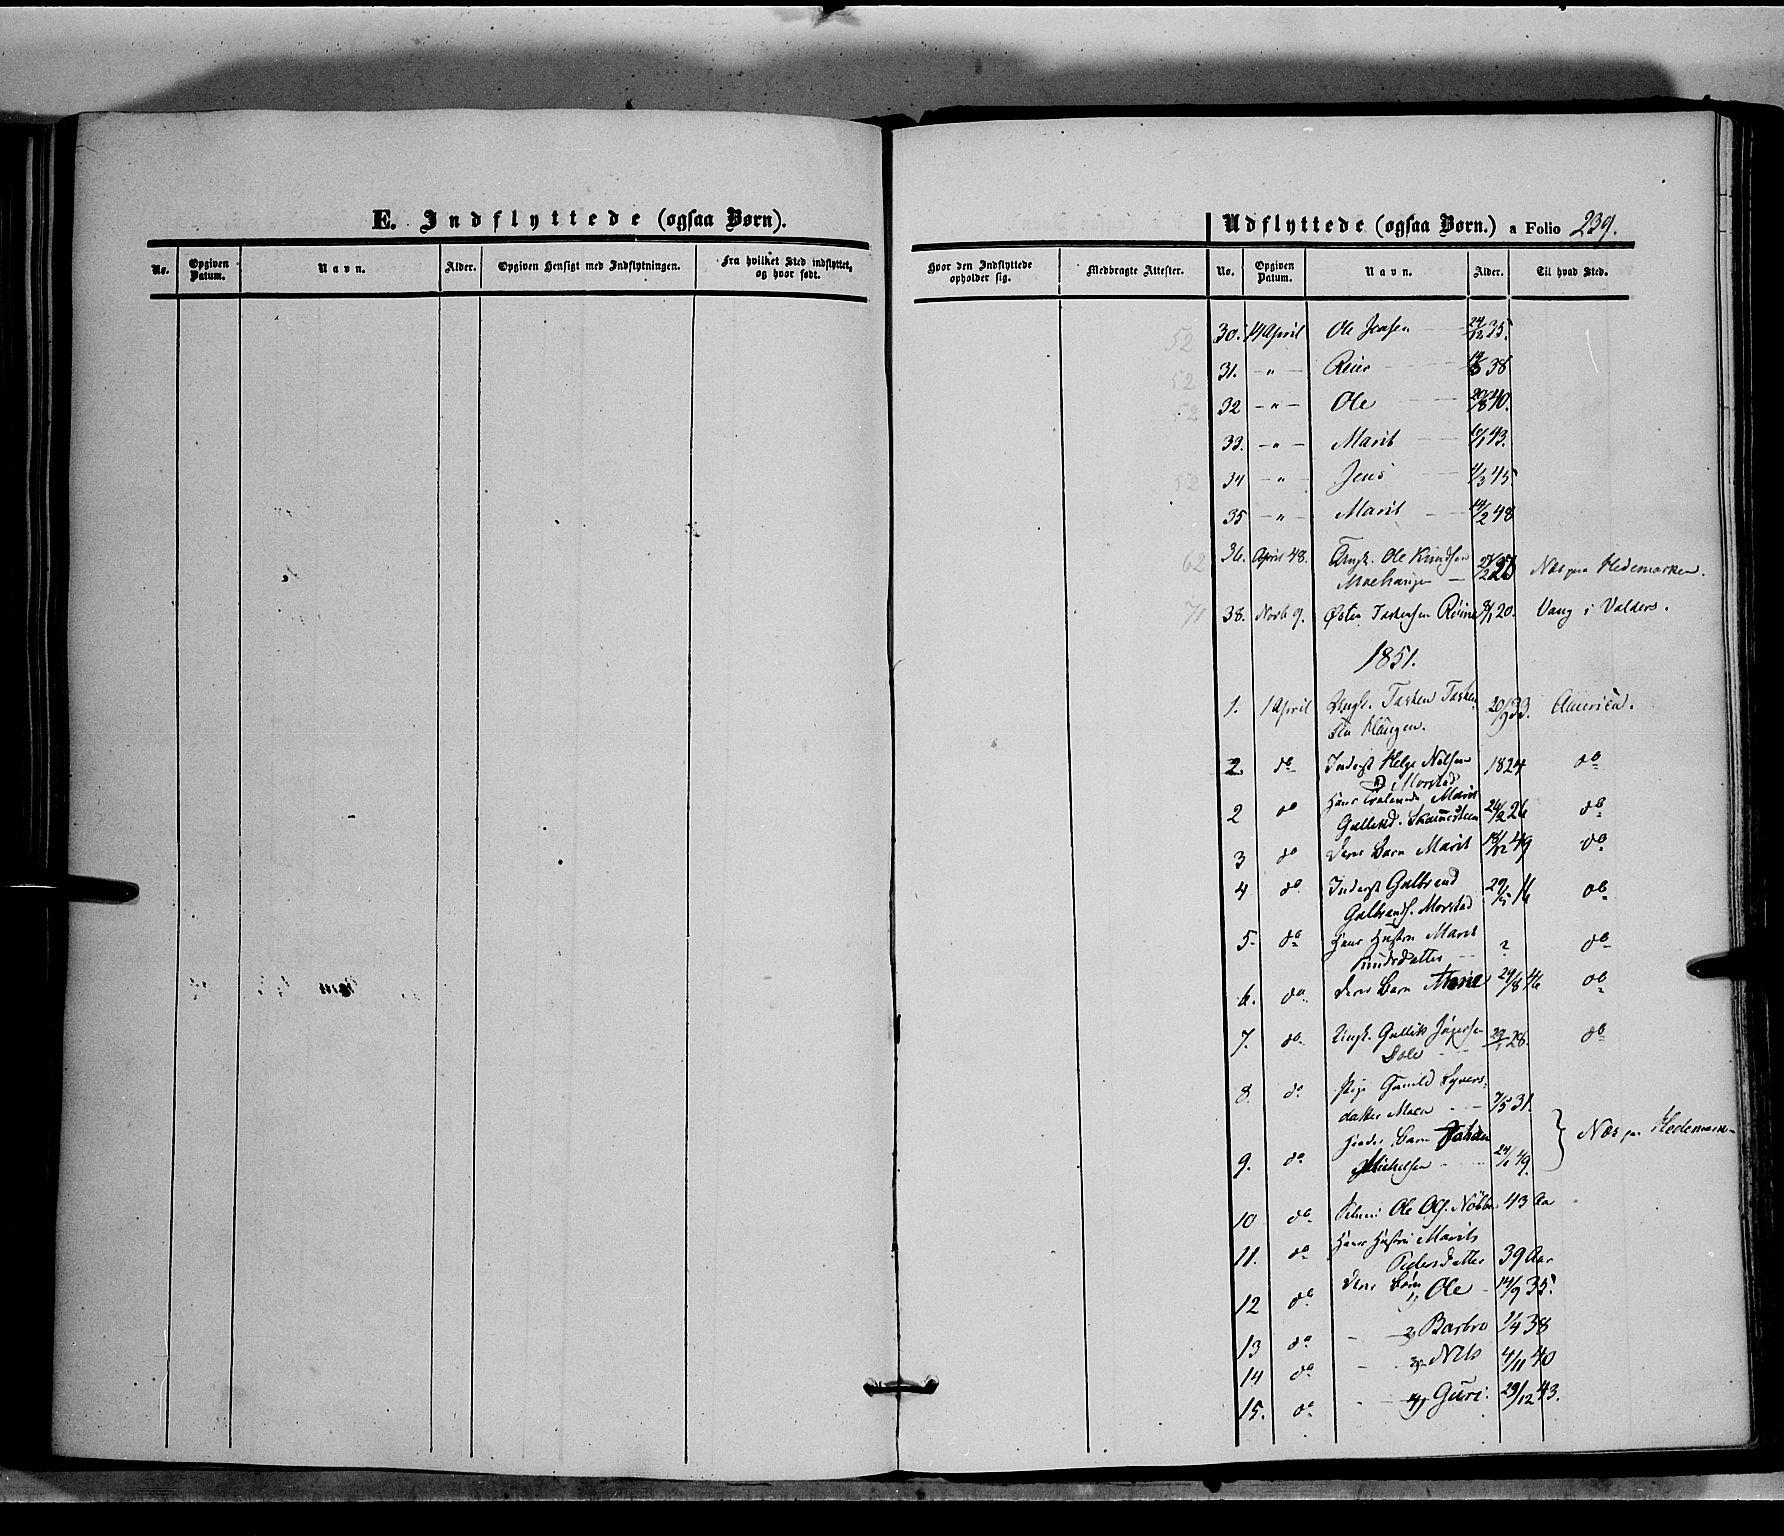 E. Indflyttede (ogsaa Børn).
No. Opgiven Datum. Navn. Alder. Opgiven Hensigt med Indflytningen. Fra hvilket Sted indflyttet, og hvor født.
Udflyttede (ogsaa Børn.) a Folio 239.
Hvor den Indflyttede opholder sig. Medbragte Attester. No. Opgiven Datum. Navn. Alder. Til hvad Sted.
52 30. 14 April Ole Jensen 24/12 35.
52 31. - " - 38
52 32 - " - Ole 40.
33. - " - Marit 43.
52 34 - " - Jens 4/3 45
35 - " - Marit 14/2 48
62 36. April 48. Ungk. Ole Knudsen
Moehaugen Næs paa Hedemarken.
71 38. Novb 9. Østen 20. Vang i Valders.
1851.
1. 1 April Ungk. Tosten Tosten-
sen Haugen. 20/9 33. America.
2. do Inderst Helge Nilsen
Morstad 1824 do
2 do Hans Marit
Gulliksd. 24/2 26 do
3 do deres Barn Marit 18/12 49 do
4 do Inderst Gulbrand
Gulbrands. Morstad 29/5 16 do
5. do Hans Hustru Marit
Knudsdatter ? do
6. do deres Barn 29/8 46 do
7. do Ungk. Gullik
28. do
8. do Pige Gunild Syvers-
datter Moen 7/5 31.
9. do Hendes Barn Johan
Michelsen 49. } Næs paa Hedemarken
10 do Ole Ols. 43 Aar
11. do Hans Hustru Marit
Pedersdatter 39 Aar
12 do deres Børn 1) Ole 14/9 35.
13 do - 2) Barbro 1/4 38
14 do - 3) Nils 4/11 40
15. do - 4) Guri. 29/12 43.